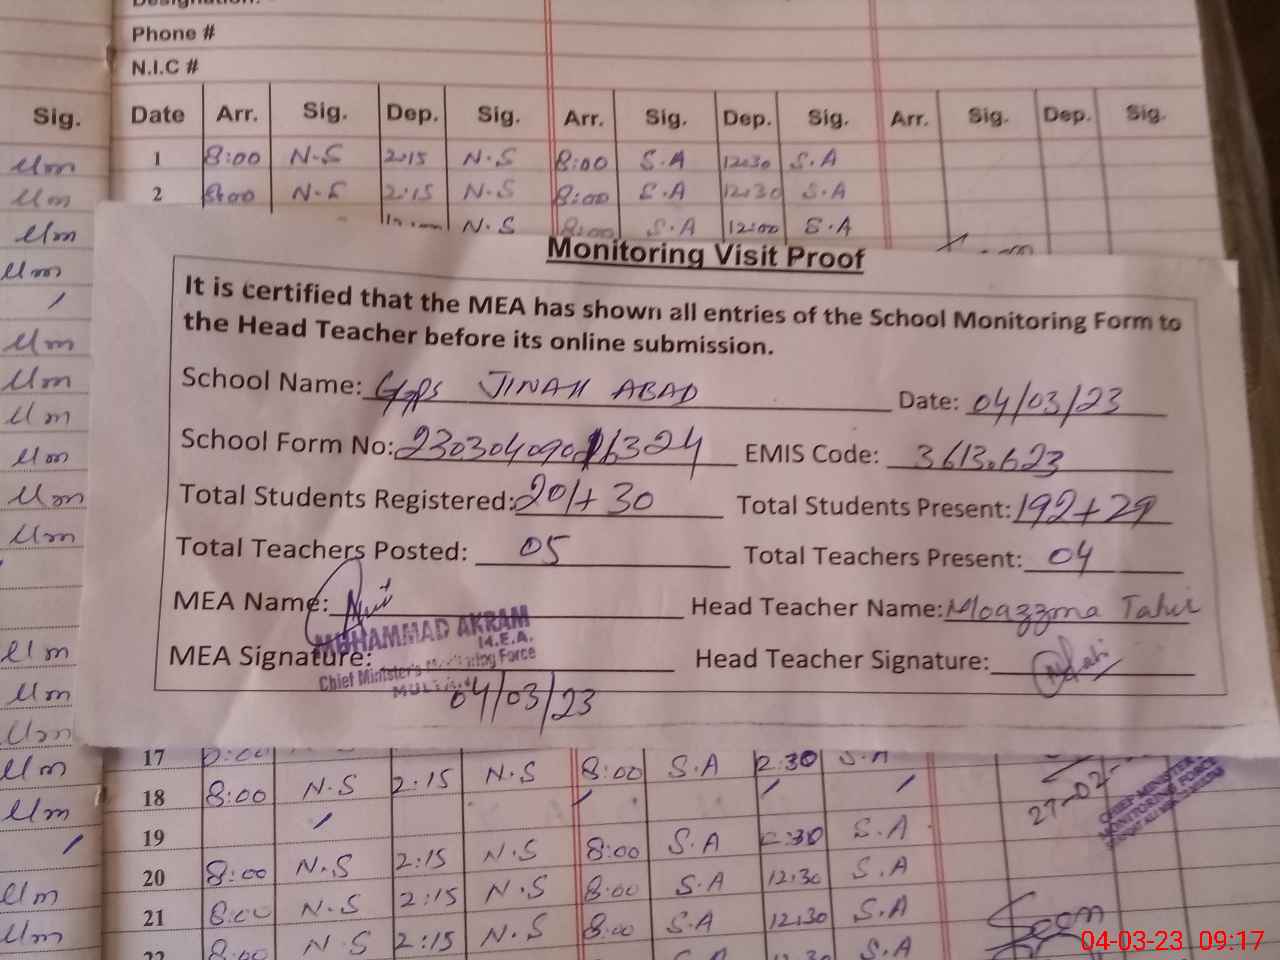 Phone #
N.I.C #
Sig. Date Arr. Sig. Dep. Sig. Arr. Sig. Dep. Sig. Arr. Sig. Dep. Sig.
um 1 8:00 N.S 2:15 N.S 8:00 S.A 12:30 S.A
um 2 8:00 N.S 2:15 N.S 8:00 S.A 12:30 S.A
um N.S 8:00 S.A 12:00 S.A
Monitoring Visit Proof
It is certified that the MEA has shown all entries of the School Monitoring Form to
the Head Teacher before its online submission.
School Name: GGPS JINAH ABAD Date: 04/03/23
School Form No: EMIS Code:
Total Students Registered: 201+30 Total Students Present: 192+29
Total Teachers Posted: 05 Total Teachers Present: 04
MEA Name: Head Teacher Name: Moazzma Tahir
MUHAMMAD AKRAM
M.E.A.
MEA Signature: Head Teacher Signature:
Chief Minister's Monitoring Force
MULTAN
04/03/23
17 8:00 N.S 2:15 N.S 8:00 S.A 12:30 S.A
18 8:00
19
20 8:00 N.S 2:15 N.S 8:00 S.A 12:30 S.A
21 8:00 N.S 2:15 N.S 8:00 S.A 12:30 S.A
22 8:00 N.S 2:15 N.S 8:00 S.A 12:30 S.A
27-02-
CHIEF MINISTER
MONITORING FORCE
04-03-23 09:17